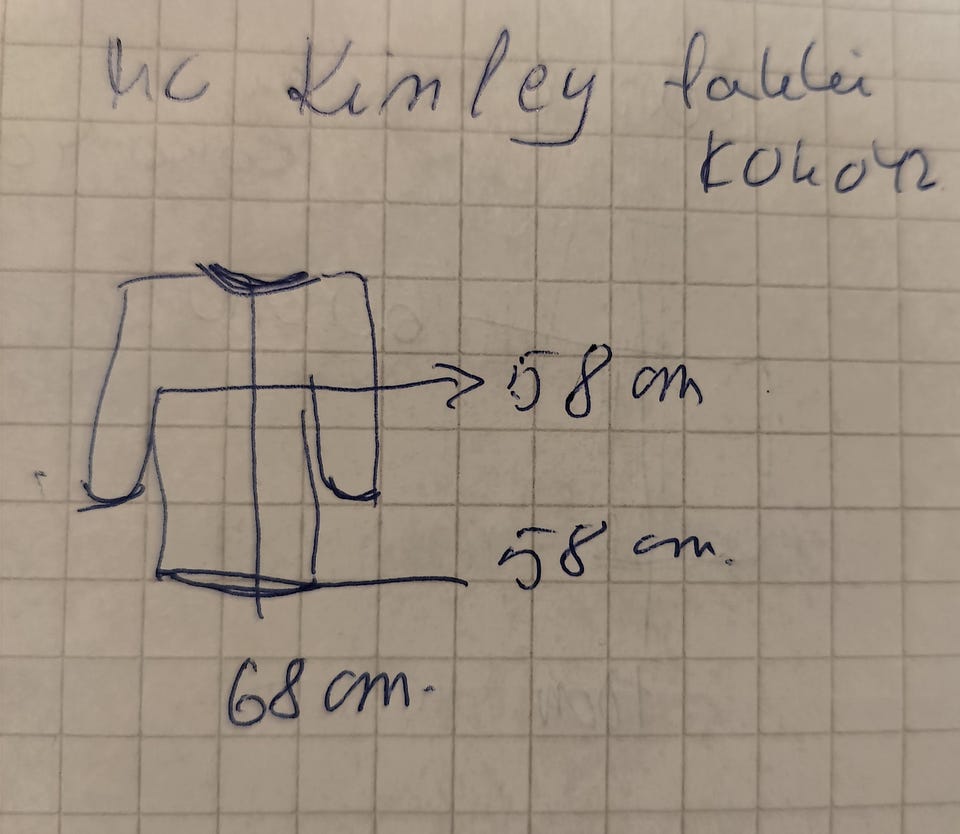 Mc Kinley takki
Koko 42
58 cm
58 cm.
68 cm.